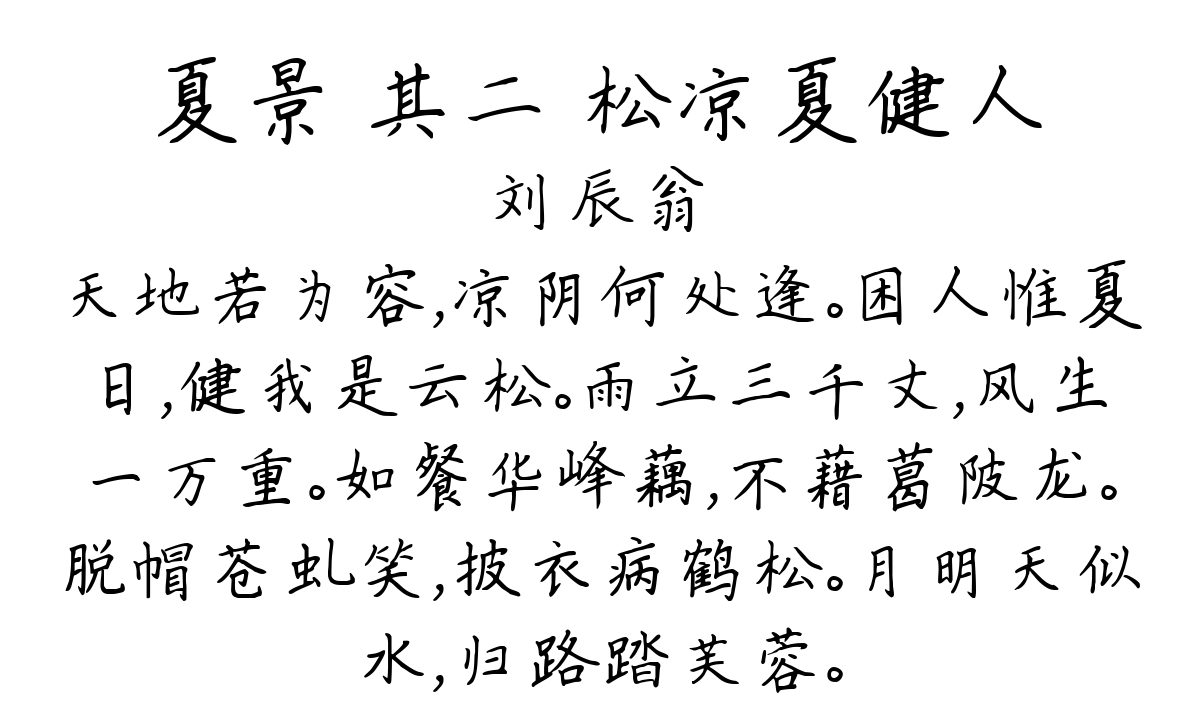 夏景 其二 松凉夏健人
刘辰翁
天地若为容,凉阴何处逢。困人惟夏
日,健我是云松。雨立三千丈,风生
一万重。如餐华峰藕,不藉葛陂龙。
脱帽苍虬笑,披衣病鹤松。月明天似
水,归路踏芙蓉。